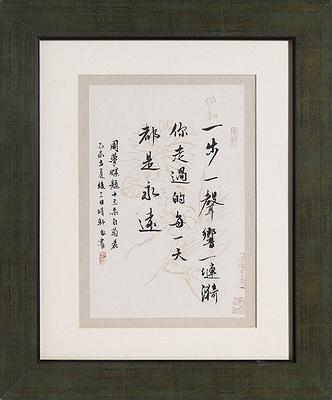 一步一聲響一漣漪
你走過的每一天
都是永遠
周夢蝶題十三朵白菊花
立夏後三日
書